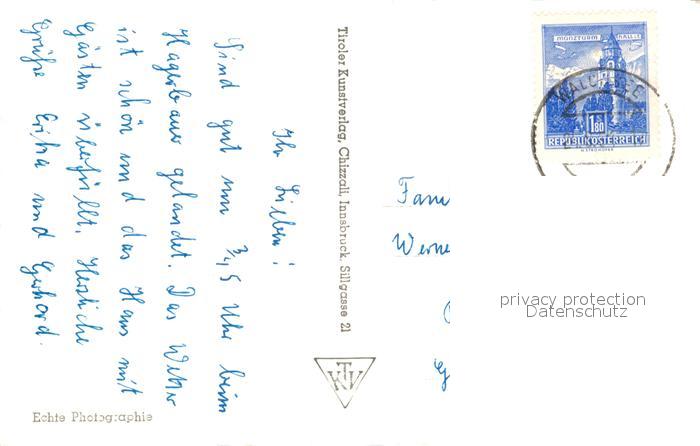 Ihr Lieben!
Sind gut um ¾5 Uhr beim
Hagerbauer gelandet. Das Wetter
ist schön und das Haus mit
Gästen überfüllt. Herzliche
Grüße Erika und Gerhard.
Echte Photographie
Tiroler Kunstverlag, Chizzali, Innsbruck, Sillgasse 21
KTV
MÜNZTURM HALL I.T.
1.80
REPUBLIK ÖSTERREICH
WALCHSEE
Fam
Werne
privacy protection
Datenschutz